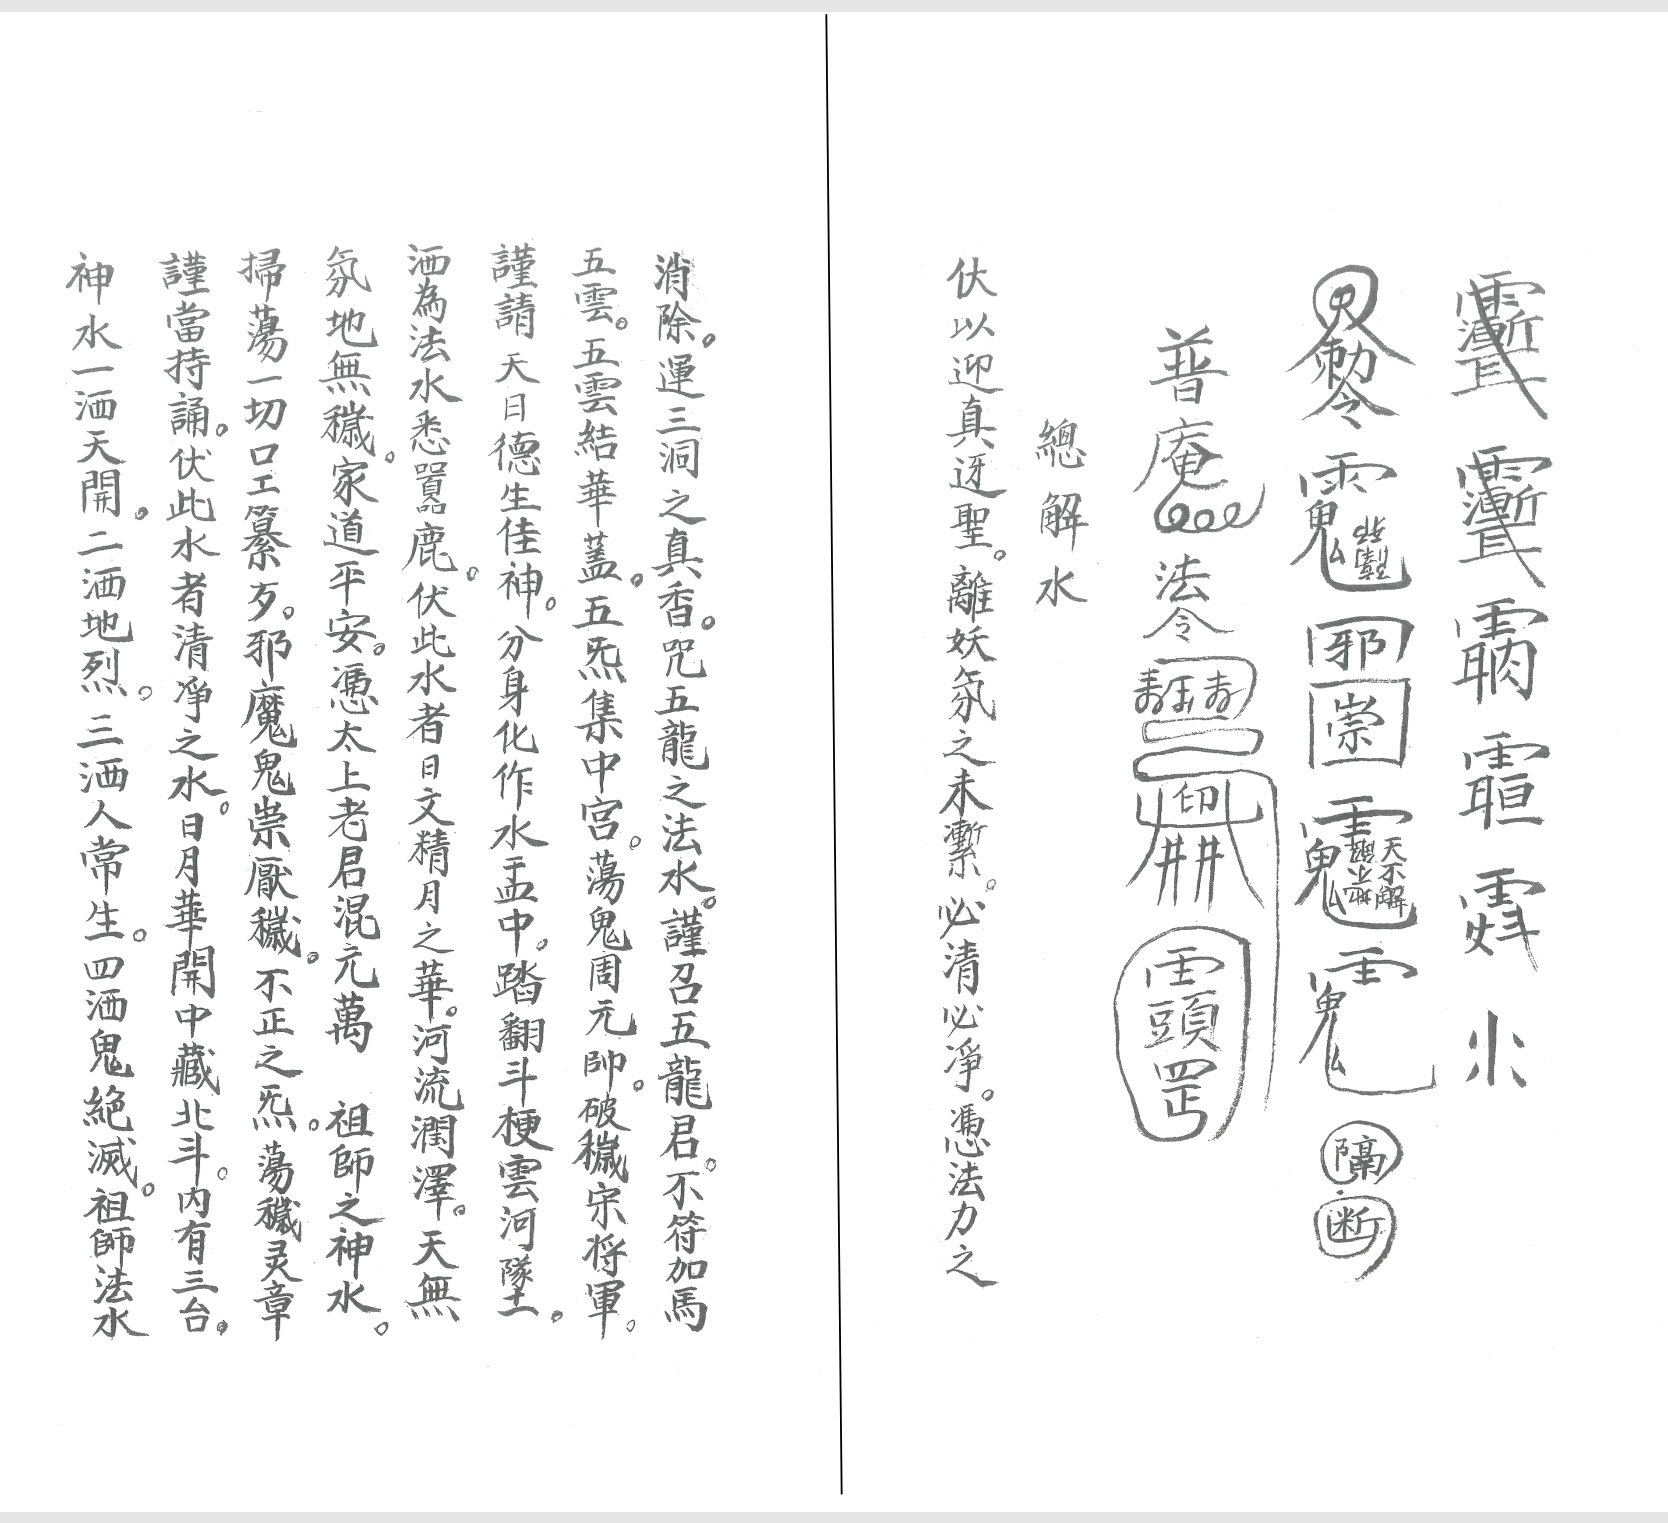 勅令
邪
祟
天不解
隔
断
普庵
法令
印
頭罡
總解水
伏以迎真迓聖。離妖氛之未。必清必凈。憑法力之
消除。運三洞之真香。咒五龍之法水。謹召五龍君。不符加馬
五雲。五雲結華蓋。五炁集中宮。蕩鬼周元帥。破穢宋将軍。
謹請天日德生佳神。分身化作水盂中。踏翻斗梗雲河。
洒為法水悉嚣鹿。伏此水者日文精月之華。河流潤澤。天無
氛地無穢。家道平安。憑太上老君混元萬 祖師之神水。
掃蕩一切口工篡歹。邪魔鬼祟厭穢。不正之炁。蕩穢灵章
謹當持誦。伏此水者清凈之水。日月華開中藏北斗。内有三台。
神水一洒天開。二洒地烈。三洒人常生。四洒鬼絶滅。祖師法水